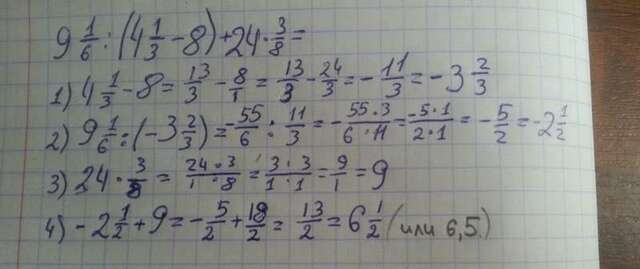 9 1/6 : (4 1/3 - 8) + 24 · 3/8 =
1) 4 1/3 - 8 = 13/3 - 8/1 = 13/3 - 24/3 = - 11/3 = - 3 2/3
2) 9 1/6 : (- 3 2/3) = -55/6 : 11/3 = - 55·3/6·11 = -5·1/2·1 = - 5/2 = -2 1/2
3) 24 · 3/8 = 24·3/1·8 = 3·3/1·1 = 9/1 = 9
4) - 2 1/2 + 9 = - 5/2 + 18/2 = 13/2 = 6 1/2 (или 6,5)